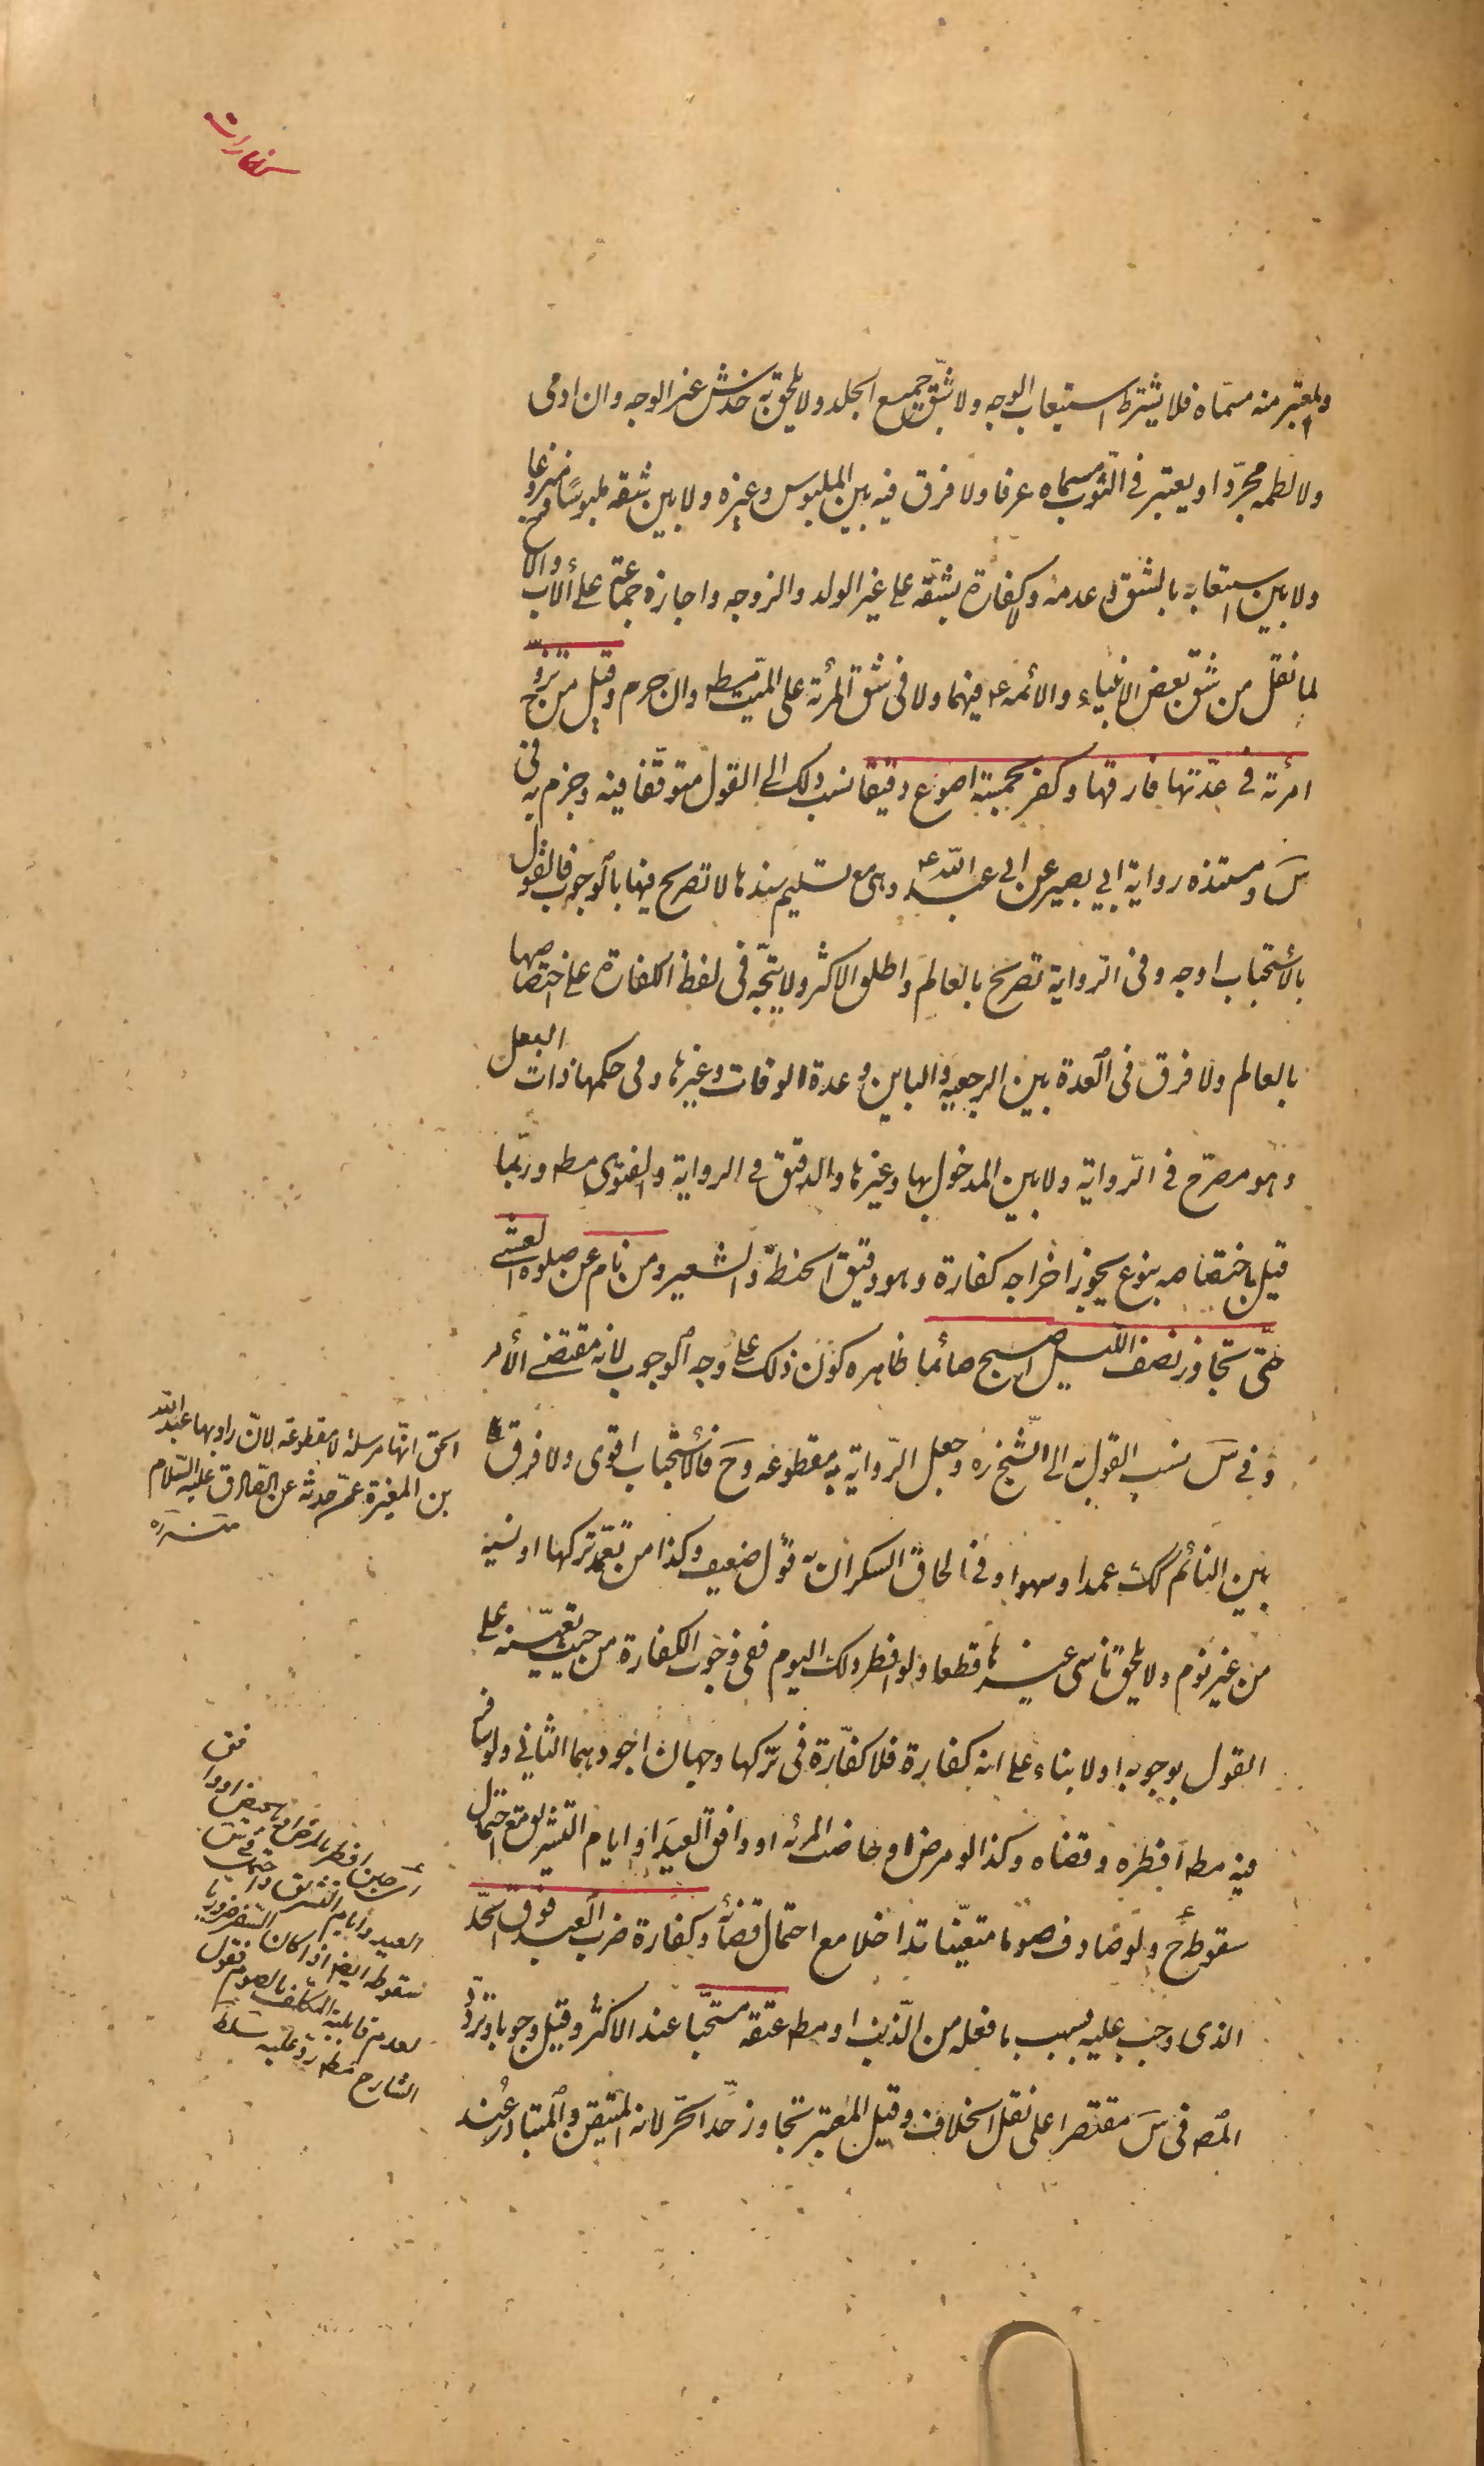 كفارات
والمعتبر منه مسماه فلا يشترط استيعاب الوجه ولا شق جميع الجلد ولا يلحق به خدش غير الوجه وان ادمى
ولا لطمه مجردا ويعتبر فى الثوب مسماه عرفا ولا فرق فيه بين الملبوس وغيره ولا بين شقه ملبوسا ومنزوعا
ولا بين استيعابه بالشق و عدمه ولا كفارة بشقه على غير الولد والزوجه واجازه جماعة على الأب والاخ
لما نقل من شق بعض الانبياء والائمه ع فيهما ولا فى شق المرئة على الميت مطه وان حرم وقيل من تزوج
امرئة فى عدتها فارقها وكفر بخمسة اصوع دقيقا نسب ذلك الى القول متوقفا فيه وجزم به فى
س ومستنده رواية ابي بصير عن ابى عبد الله ع وهى مع تسليم سندها لا تصريح فيها بالوجوب فالقول
بالأستحباب اوجه وفى الرواية تصريح بالعالم واطلق الاكثر ولا يتجه فى لفظ الكفارة على اختصاصها
بالعالم ولا فرق فى العدة بين الرجعيه والباين وعدة الوفات وغيرها وفى حكمها ذات البعل
وهو مصرح فى الرواية ولا بين المدخول بها وغيرها والدقيق فى الرواية والفتوى مطه وربما
قيل باختصاصه بنوع يجوز اخراجه كفارة وهو دقيق الحنطة والشعير ومن نام عن صلوة العشاء
حتى تجاوز نصف الليل اصبح صائما ظاهره كون ذلك على وجه الوجوب لانه مقتضى الأمر
وفى س نسب القول به الى الشيخ ره وجعل الرواية به مقطوعه وح فالأستحباب اقوى ولا فرق
بين النائم كك عمدا وسهوا وفى الحاق السكران به قول ضعيف وكذا من تعمد تركها او نسيه
من غير نوم ولا يلحق ناسى غيرها قطعا ولو افطر ذلك اليوم ففى وجوب الكفارة من حيث تعينه على
القول بوجوبه اولا بناء على انه كفارة فلا كفارة فى تركها وجهان اجودهما الثاني ولو سافر
فيه مطه افطره وقضاه وكذا لو مرض او حاضت المرئه او وافق العيد او ايام التشريق مع احتمال
سقوطه ح ولو صادف صوما متعينا تداخلا مع احتمال قضائه وكفارة ضرب العبد فوق الحد
الذى وجب عليه بسبب ما فعله من الذنب او مطه عتقه مستحبا عند الاكثر وقيل وجوبا وتردد
المصه فى س مقتصرا على نقل الخلاف وقيل المعتبر تجاوز حد الحر لانه المتيقن والمتبادر عند
الحق انها مرسلة لا مقطوعه لان راويها عبد الله
بن المغيرة عمن حدثه عن الصادق عليه السلام
منه ره
العيد وايام التشريق
سقوطه ايضه اذا كان السفر ضروريا
لعدم قابلية المكلف بالصوم فقول
الشارح مطه رد عليه